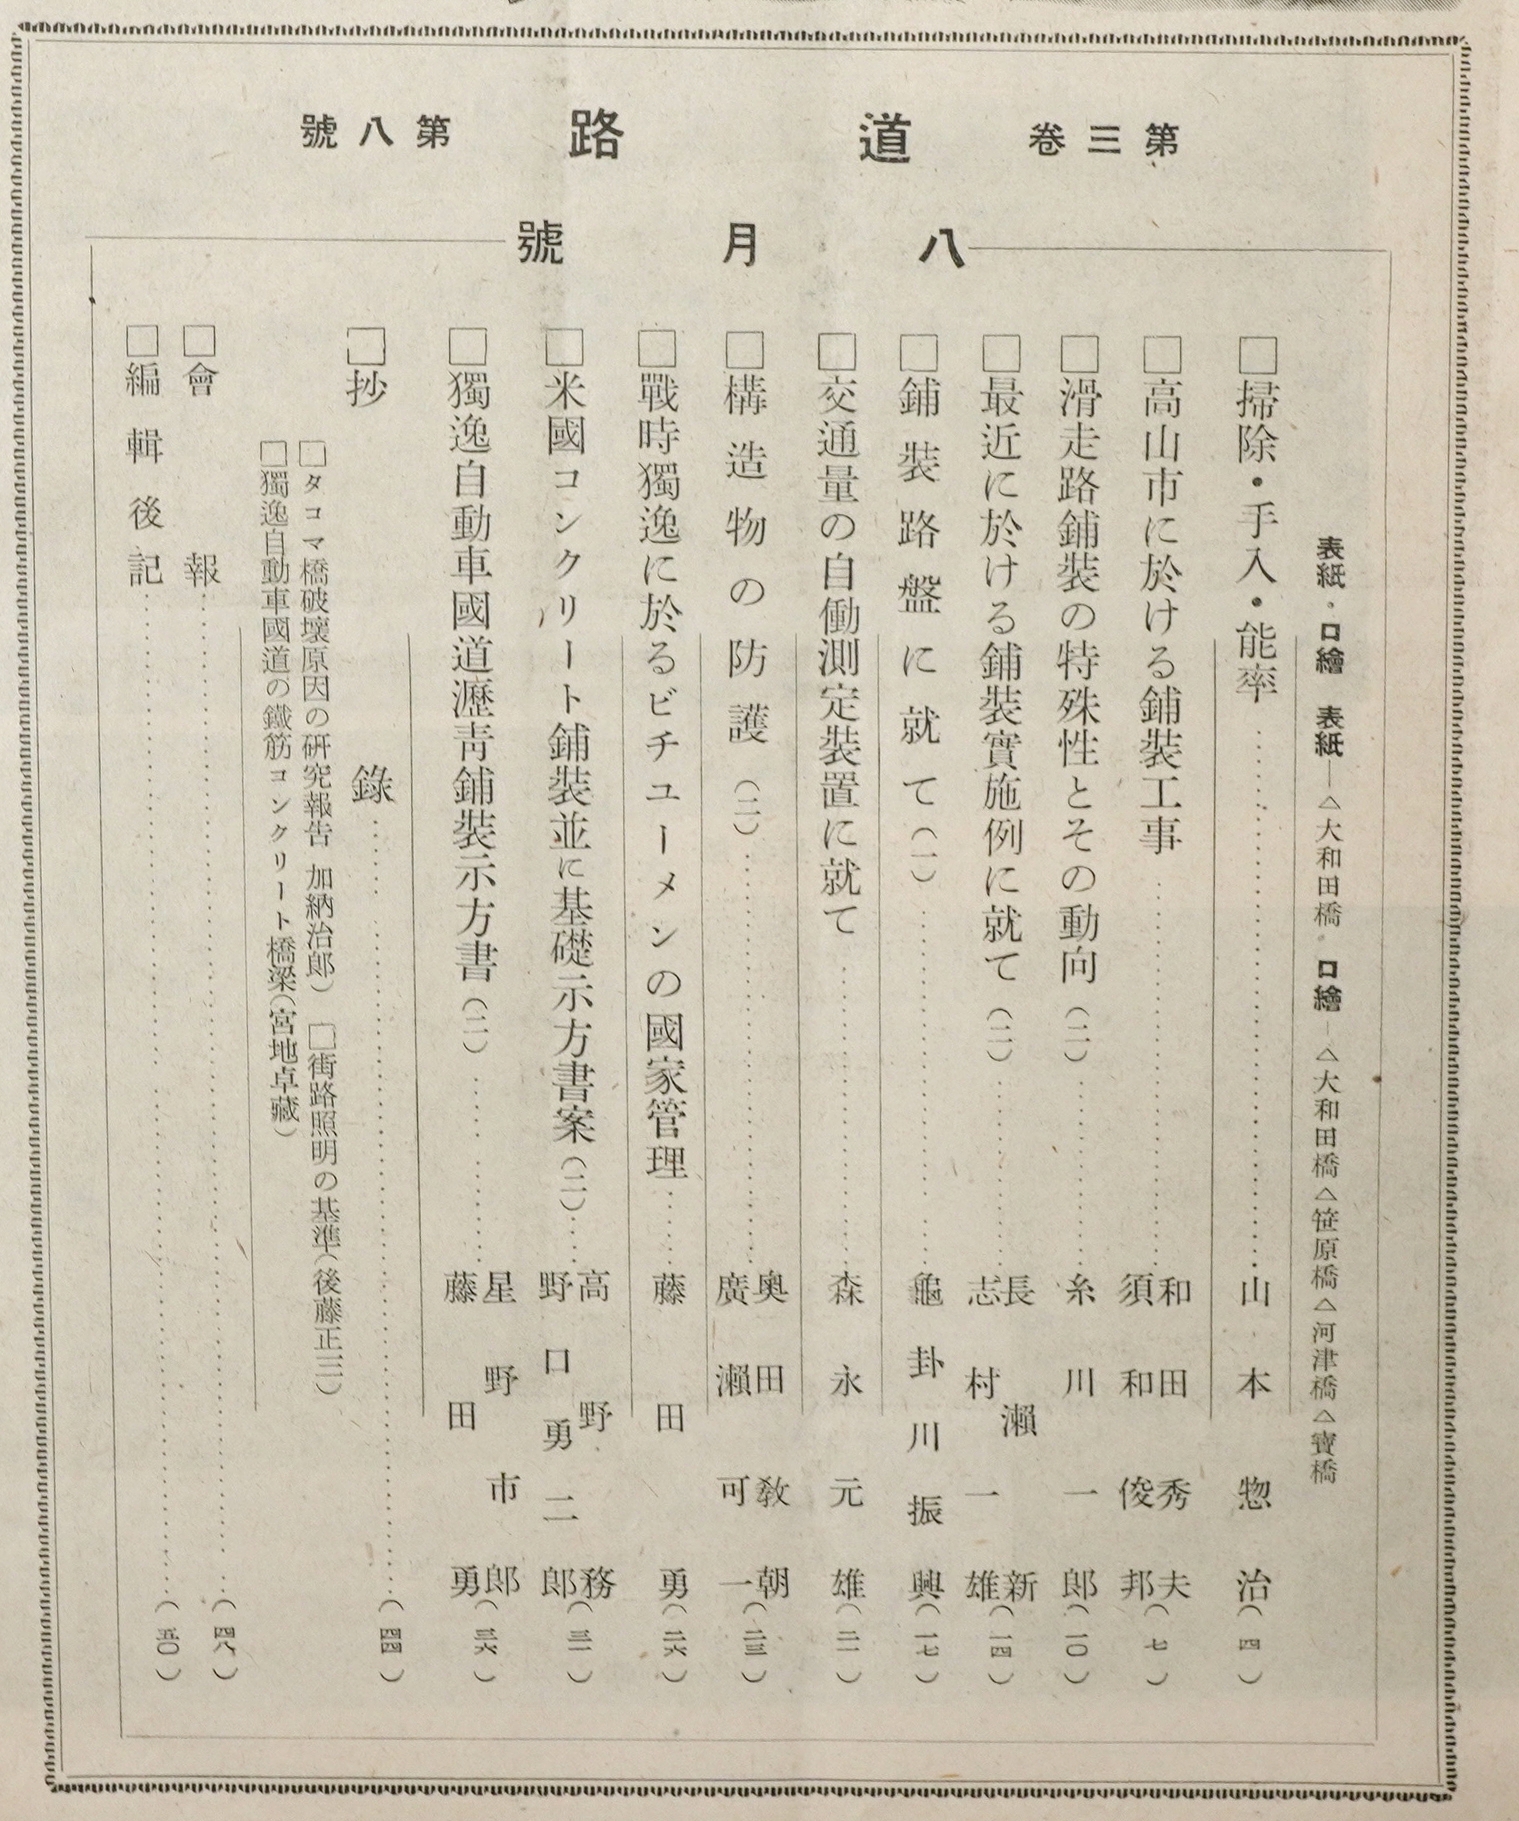 第三卷 道路 第八號
八月號
表紙・口繪 表紙―△大和田橋 口繪―△大和田橋△笹原橋△河津橋△寶橋
□掃除・手入・能率……山本惣治(四)
□高山市に於ける鋪裝工事……和田秀夫 須和田俊邦(七)
□滑走路鋪裝の特殊性とその動向(二)……糸川一郎(一〇)
□最近に於ける鋪裝實施例に就て(二)……長瀨新 志村一雄(一四)
□鋪裝路盤に就て(一)……龜卦川振興(一七)
□交通量の自働測定裝置に就て……森永元雄(二一)
□構造物の防護(二)……奧田敎朝 廣瀨可一(二三)
□戰時獨逸に於るビチユーメンの國家管理……藤田勇(二六)
□米國コンクリート鋪裝並に基礎示方書案(二)……高野務 野口勇二郎(三一)
□獨逸自動車國道瀝靑鋪裝示方書(二)……星野市郎 藤田勇(三六)
□抄錄……(四四)
□タコマ橋破壞原因の硏究報告 加納治郎) □街路照明の基準(後藤正三)
□獨逸自動車國道の鐵筋コンクリート橋梁(宮地卓藏)
□會報……(四八)
□編輯後記……(五〇)